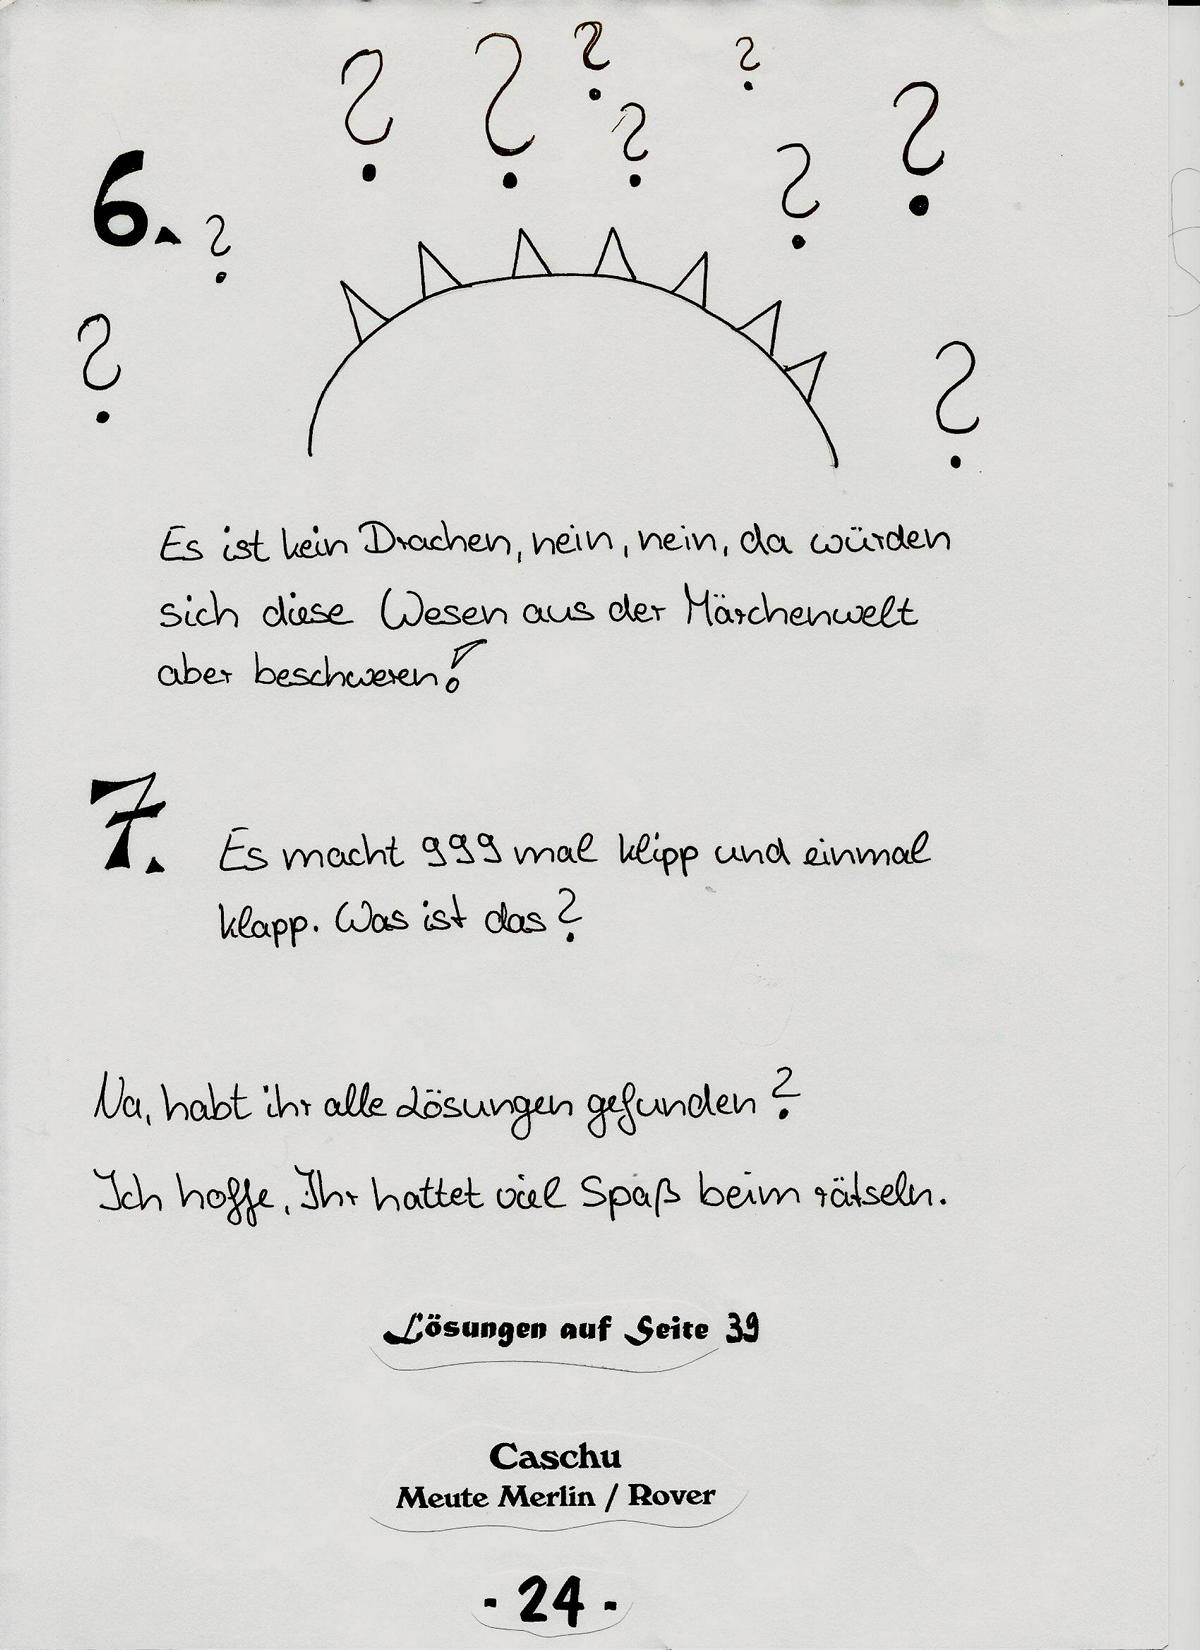 ? ? ? ?
? ? ?
6. ?
? ?
Es ist kein Drachen, nein, nein, da würden
sich diese Wesen aus der Märchenwelt
aber beschweren!
7. Es macht 999 mal klipp und einmal
klapp. Was ist das?
Na, habt ihr alle Lösungen gefunden?
Ich hoffe, Ihr hattet viel Spaß beim rätseln.
Lösungen auf Seite 39
Caschu
Meute Merlin / Rover
- 24 -